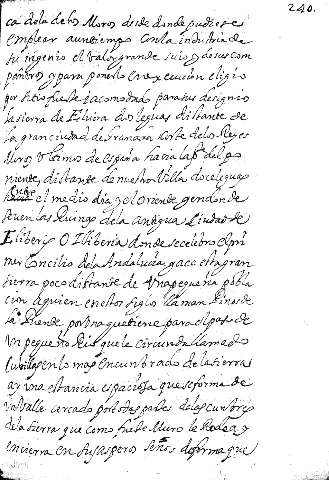 240.
ca dela delos Moros desde donde pudiese
emplear aun tiempo con la industria de
su ingenio el valor grande suio y de sus com
pañeros y para ponerlo en execucion eligio
por sitio fuerte y acomodado para sus designios
la sierra de Elvira dos leguas distante de
la gran ciudad de Granada Corte de los Reyes
Moros ultimos de España hacia la pte. del po
niente, distante de nuestra Villa doce leguas
entre el medio dia y el Oriente y en donde
se uen las Ruinas de la antigua Ciudad de
Eliberis O Iliberia donde se celebro el pri
mer Concilio dela Andalucia yace esta gran
sierra poco distante de una pequeña pobla
cion a quien en estos siglos llaman Pinos de
la Puente por una que tiene para el paso de
un pequeño Rio que le circunda llamado
Cubillas en lo mas encumbrado de la sierra
ay una estancia espaciosa que se forma de
un Valle cercado por todas partes de las cumbres
de la sierra que como fuerte Muro le Rodea y
encierra en sus asperos senos de forma que